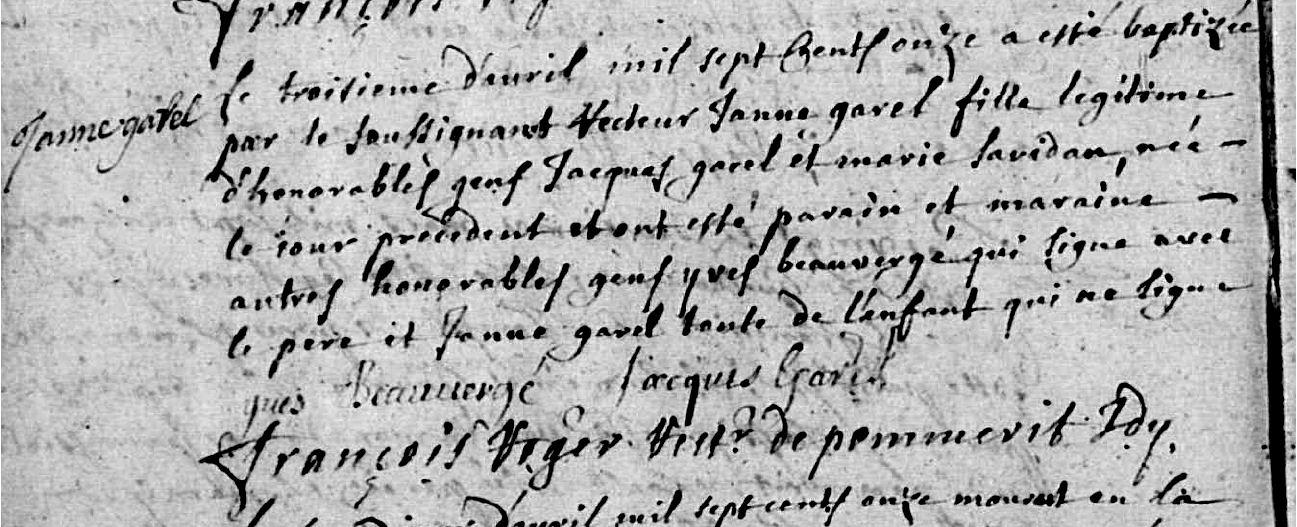 François
Janne garel
Le troisieme d'auril mil sept Cents onze a esté baptizée
par le soussignant Recteur Janne garel fille legitime
d'honorables gens Jacques garel et marie savidan, née
le iour precedent et ont esté parain et maraine
autres honorables gens yves beauvergé qui signe avec
le pere et Janne garel tante de l'enfant qui ne signe
yves Beauuergé Jacques Garel
François Roger Rectr. de pommerit Jdy.
d'auril mil sept cents onze mourut en la